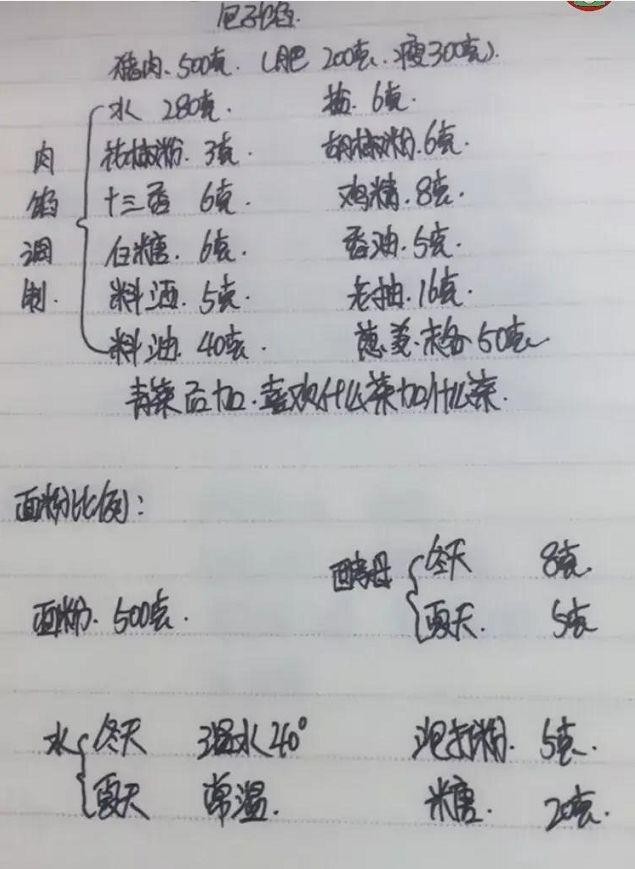 包子馅
猪肉.500克.(肥 200克.瘦300克).
肉馅调制.
水 280克. 盐. 6克.
花椒粉. 3克. 胡椒粉.6克.
十三香 6克. 鸡精.8克.
白糖. 6克. 香油.5克.
料酒. 5克. 老抽.16克.
料油. 40克. 葱.姜.末各50克
青菜后加.喜欢什么菜加什么菜.
面粉比例:
酵母 冬天 8克
面粉. 500克. 夏天. 5克
水 冬天 温水40° 泡打粉. 5克.
夏天 常温. 米糖. 20克.